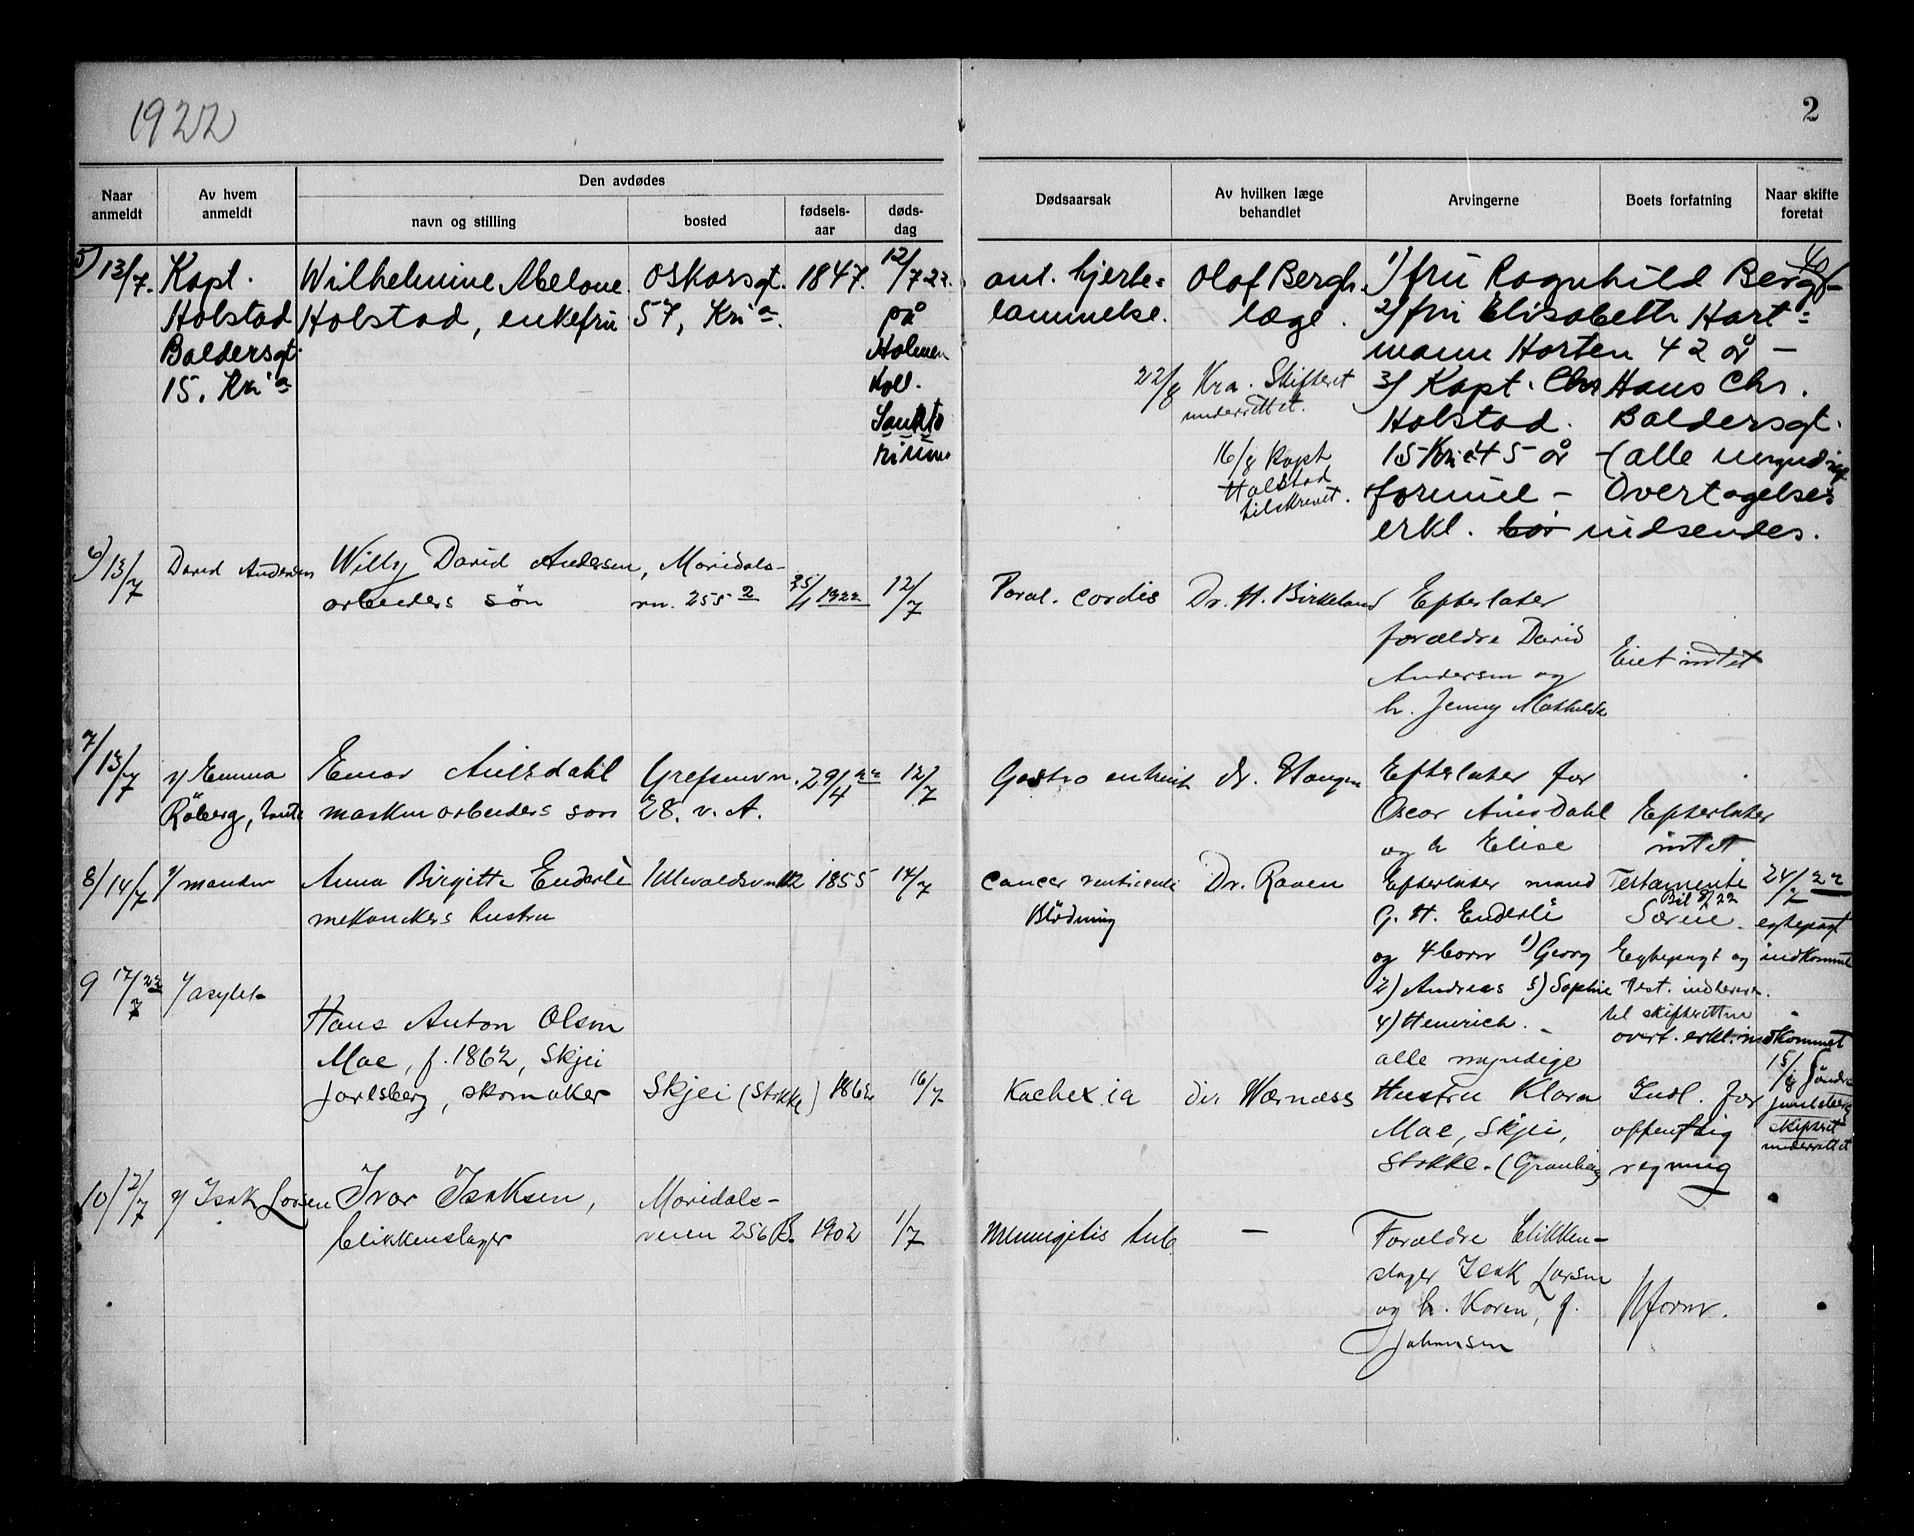 1922
2
Naar anmeldt
Av hvem anmeldt
Den avdødes
navn og stilling
bosted
fødsels-aar
døds-dag
Dødsaarsak
Av hvilken læge behandlet
Arvingerne
Boets forfatning
Naar skifte foretat
5) 13/7.
Kapt.
Holstad
Baldersgt.
15. Kr.ia
Wilhelmine Abelone
Holstad, enkefru
Oskarsgt.
57, Kr.ia.
1847.
12/7 22.
på
Holmen
Koll.
Sanato
rium
ant. hjerte=
lammelse.
Olaf Bergh.
læge.
22/8 Kra. Skifteret
underrettet.
16/8 Kapt
Holstad
tilskrevet.
1) fru Ragnhild Bergh
2) fru Elisabeth Hart=
mann Horten 42 år –
3) Kapt. Chr Hans Chr.
Holstad. Baldersgt.
15 Kr.ia 45 år – (alle myndige
formue – Overtagelses
erkl. bør indsendes.
6) 13/7
David Andersen
Willy David Andersen,
arbeiders søn
Maridals-
vn. 255 2
25/1 1922
12/7
Paral. cordis
Dr. H. Birkeland
Efterlater
forældre David
Andersen og
h. Jenny Mathilde
Eiet intet
7/13/7
v/ Emma
Röberg, tante
Einar Amsdahl
maskinarbeiders søn
Grefsenvn.
28. v. A.
29/4 22
12/7
Gastro enterit
dr. Haugen
Efterlater for
Oscar Amsdahl
og h Elise
Efterlater
intet
8/14/7
v/ manden
Anna Birgitte Enderle
mekanikers hustru
Ullevoldsvn 112
1855
14/7
Cancer ventriculi
Blödning
Dr. Raven
Efterlater mand
G. H. Enderle
og 4 barn 1) Georg
2) Andreas 3) Sophie
4) Heinrich. –
alle myndige
Testamente
Særeie.
Egtepagt og
Test. indleveres
til skifteretten
overt. erkl. indkommet
24/7 22
egtepagt
indkommet
9 17/7 22
v/ asylet
Hans Anton Olsen
Moe, f. 1862, Skjei
Jarlsberg, skomaker
Skjei (Stokke)
1862
16/7
Kachexia
dir Wærness
Hustru Klara
Moe, Skjei,
Stokke.
Indl. for
offentlig
regning
15/8 Söndre
Jarlsberg
skifteret
underrettet
10/ 2/7
v/ Isak Larsen
Ivar Isaksen,
blikkenslager
Maridals-
veien 256 B.
1902
1/7
Meningitis tub
–
Forældre blikken-
slager Isak Larsen
og h. Karen, f.
Johansen
U/form.